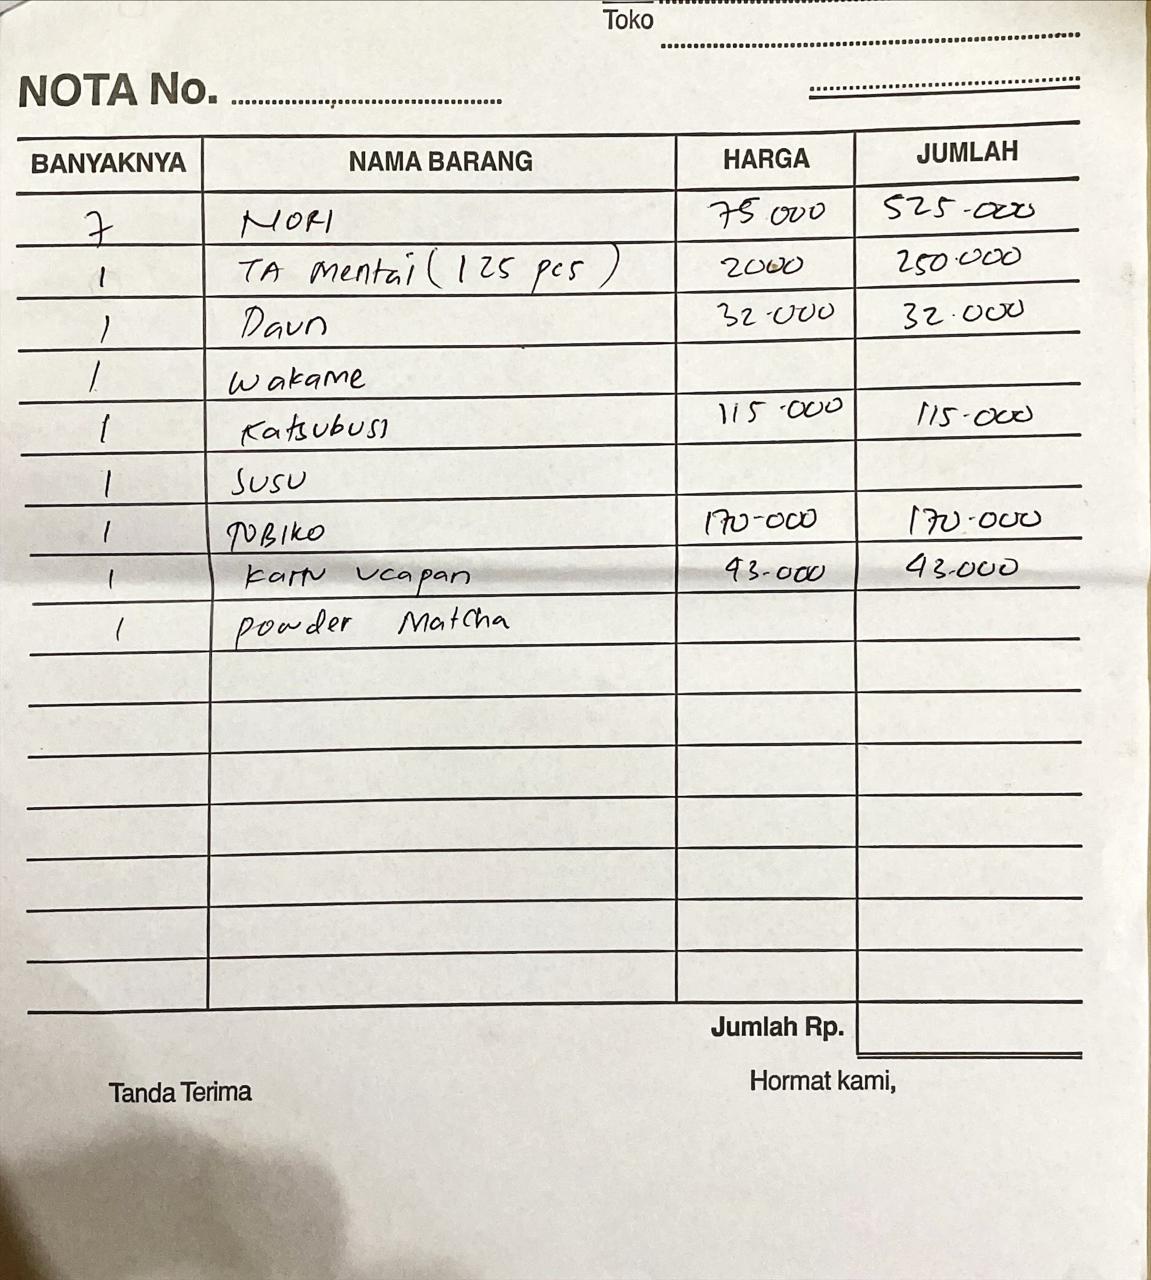 Toko
NOTA No.
BANYAKNYA NAMA BARANG HARGA JUMLAH
7 NORI 75.000 525.000
1 TA mentai (125 pcs) 2000 250.000
1 Daun 32.000 32.000
1 wakame
1 Katsubusi 115.000 115.000
1 SUSU
1 TOBIKO 170-000 170-000
1 Kartu ucapan 43.000 43.000
1 powder Matcha
Jumlah Rp.
Tanda Terima Hormat kami,